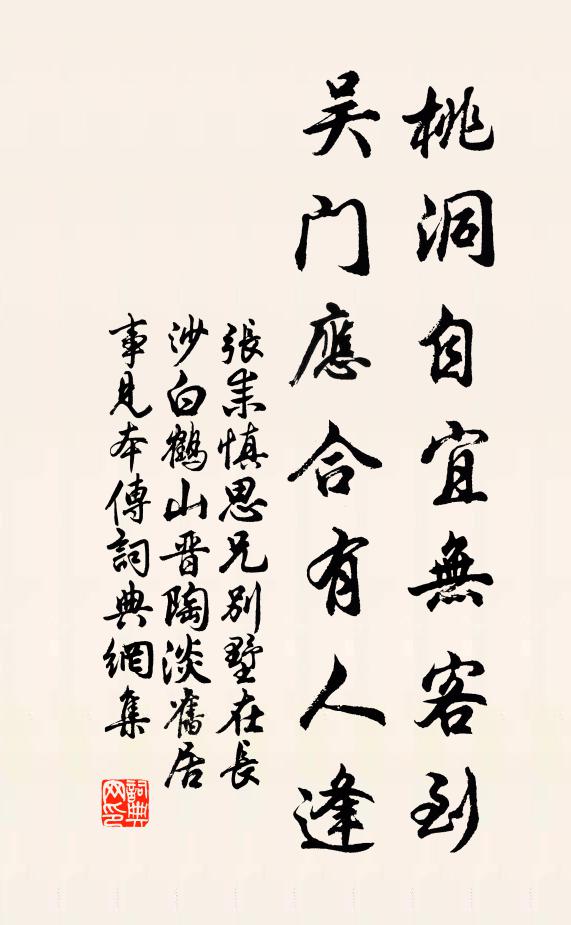 桃洞自宜無客到
吴门應合有人逢
張耒慎思兄别墅在長
沙白鶴山晋陶淡舊居
事見本傳詞典網集
詞典网印